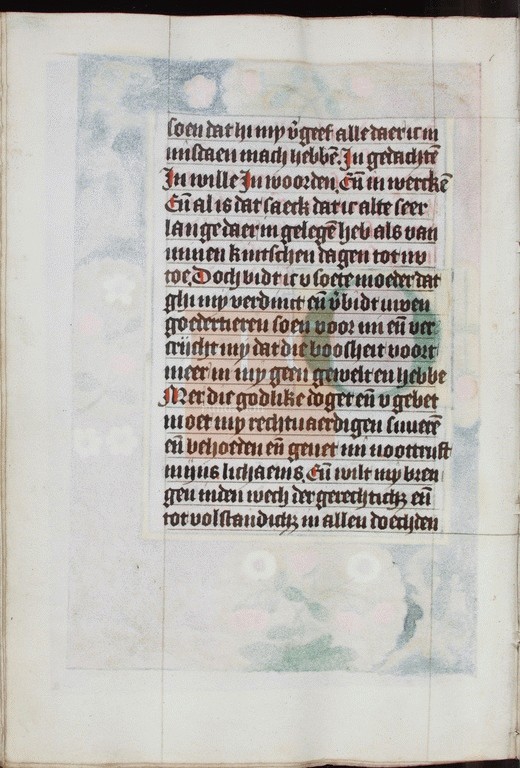 soen dat hi my v̄geef alle daer ic in
misdaen mach hebbē. In gedachtē
In wille In woorden. Eñ in werckē
Eñ al is dat saeck dat ic alte seer
lange daer in gelegē heb als van
minen kintschen dagen tot nv
toe. Doch bidt ic v soete moeder dat
ghi my verdinct eñ v̄bidt uwen
goedertieren soen voor mi eñ ver
crijcht my dat die boosheit voort
meer in my geen gewelt en hebbe
Mer die godlike doget eñ v gebet
moet my rechtuaerdigen suuerē
eñ behoeden eñ geuet mi nootruft
mijns lichaems. Eñ wilt my bren
gen inden wech der gerechtichz eñ
tot volstandichz in allen doechden